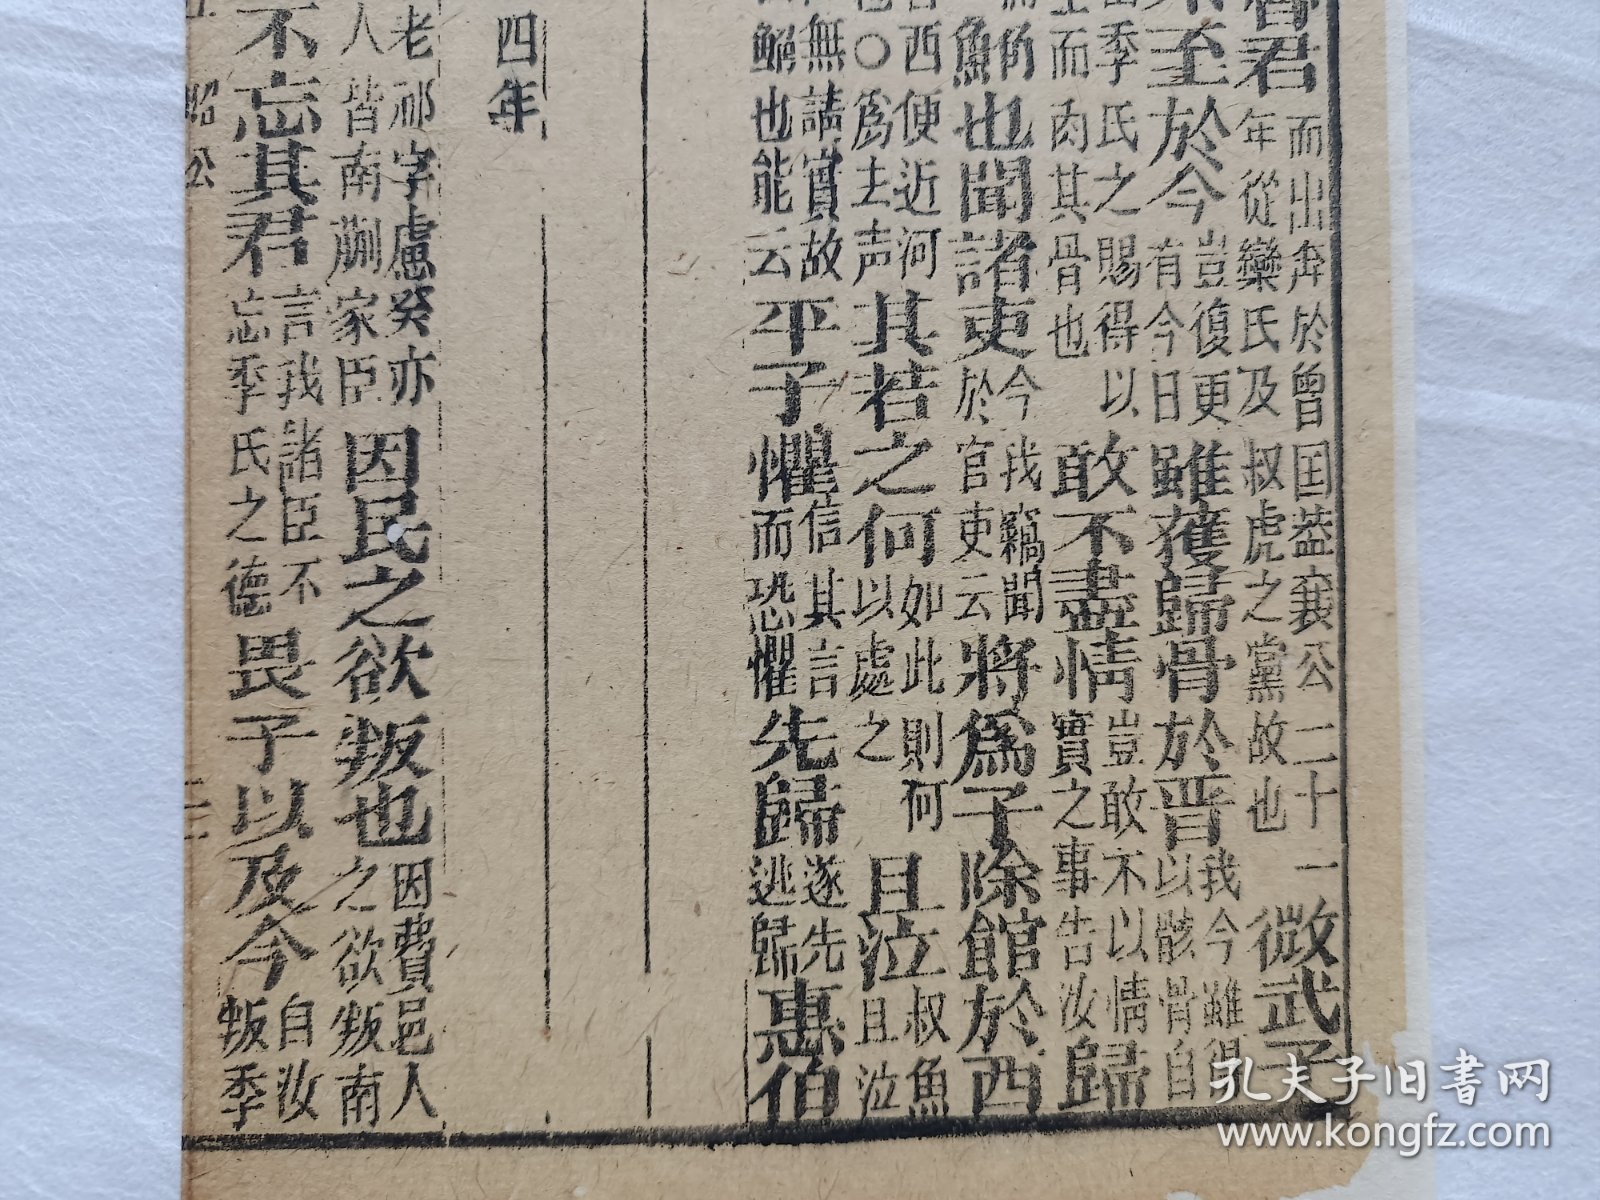 君
而出奔於曾囯盖襄公二十一
年從欒氏及叔虎之黨故也
微武子
至於今
豈復更
有今日
雖獲歸骨於晋
我今雖得
以骸骨自
季氏之賜得以
而肉其骨也
敢不盡情
豈敢不以情
實之事告汝
歸
魚也聞諸吏
今我竊聞
於官吏云
將爲子除館於西
西便近河
〇爲去声
其若之何
如此則何
以處之
且泣
叔魚
且泣
無請實故
鮒也能云
平子懼
信其言
而恐懼
先歸
遂先
逃歸
惠伯
四年
老祁字慮癸亦
人皆南蒯家臣
因民之欲叛也
因費邑人
之欲叛南
不忘其君
言我諸臣不
忘季氏之德
畏子以及今
自汝
叛季
昭公
孔夫子旧書网
www.kongfz.com